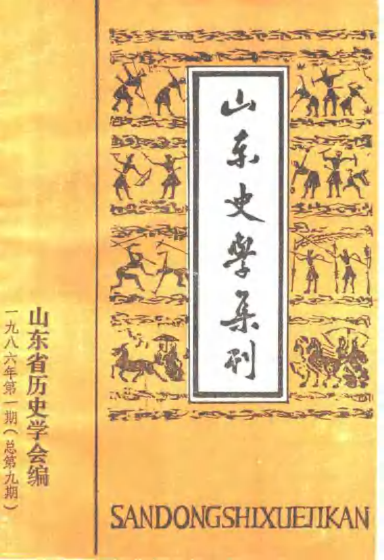 山东史学集刊
山东省历史学会编
一九八六年第一期(总第九期)
SANDONGSHIXUEJIKAN